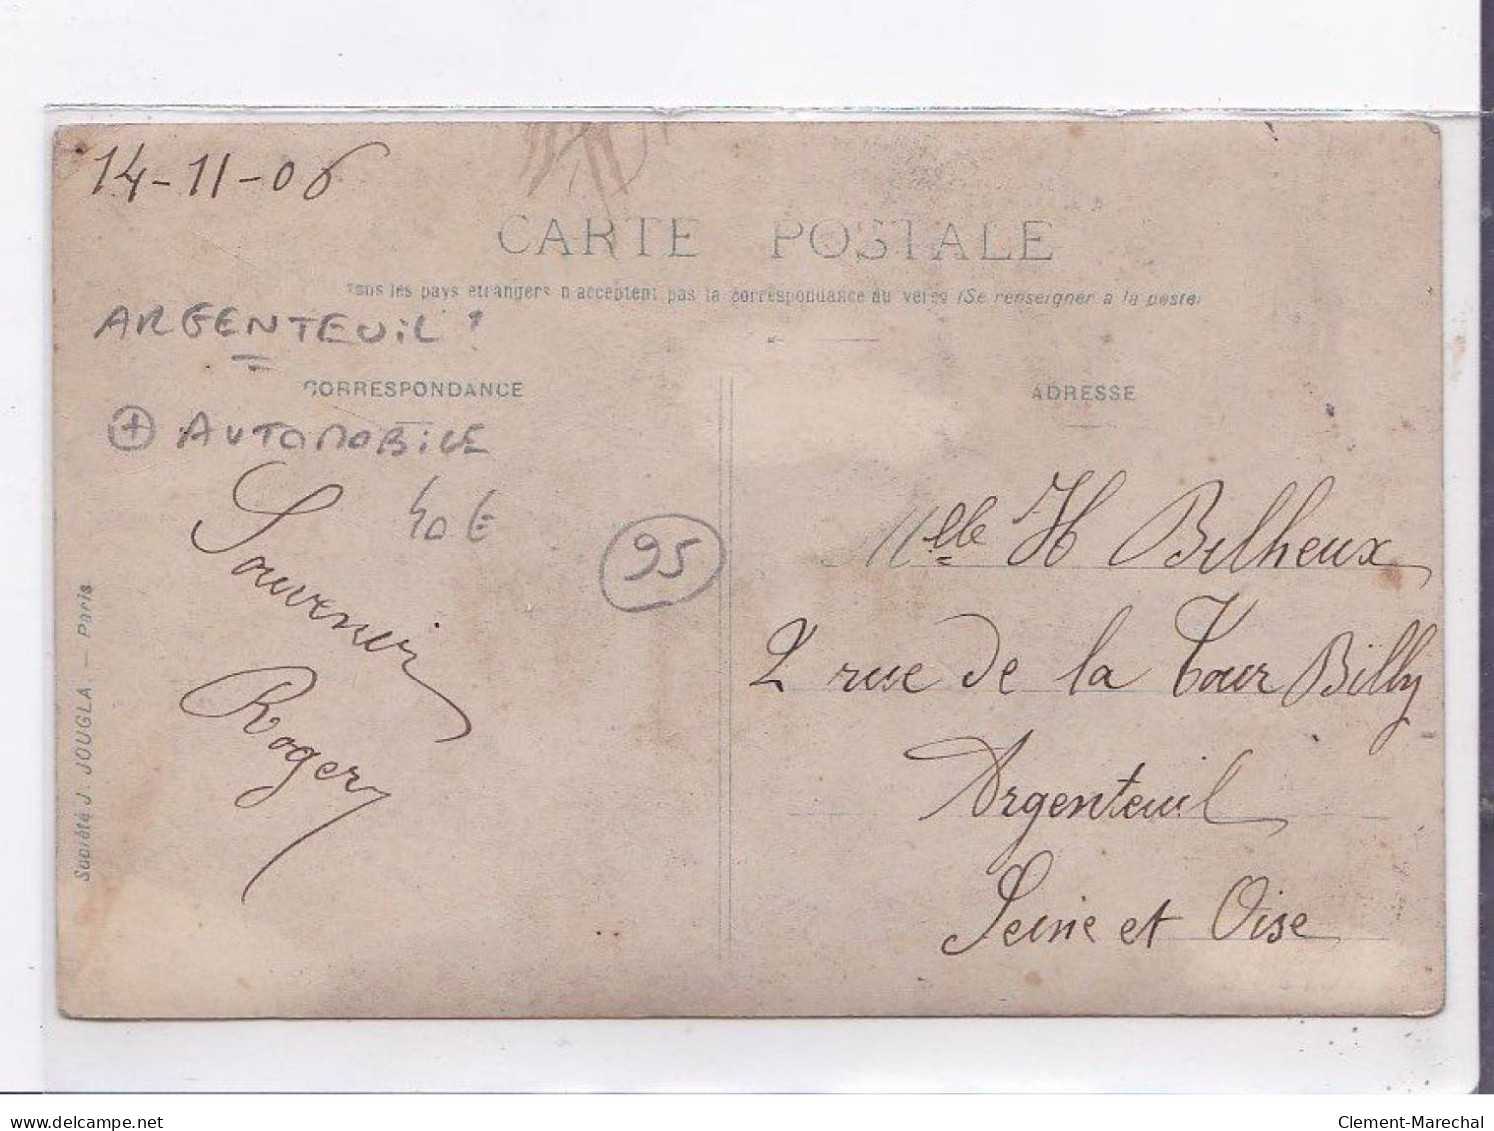 14-11-06
CARTE POSTALE
Tous les pays étrangers n'acceptent pas la correspondance au verso (Se renseigner à la poste)
ARGENTEUIL ?
CORRESPONDANCE
ADRESSE
+ AUTOMOBILE
40 €
95
Souvenir
Roger
Mlle H Bilheux
2 rue de la Tour Billy
Argenteuil
Seine et Oise
Société J. JOUGLA. — Paris
delcampe.net
Clement-Marechal